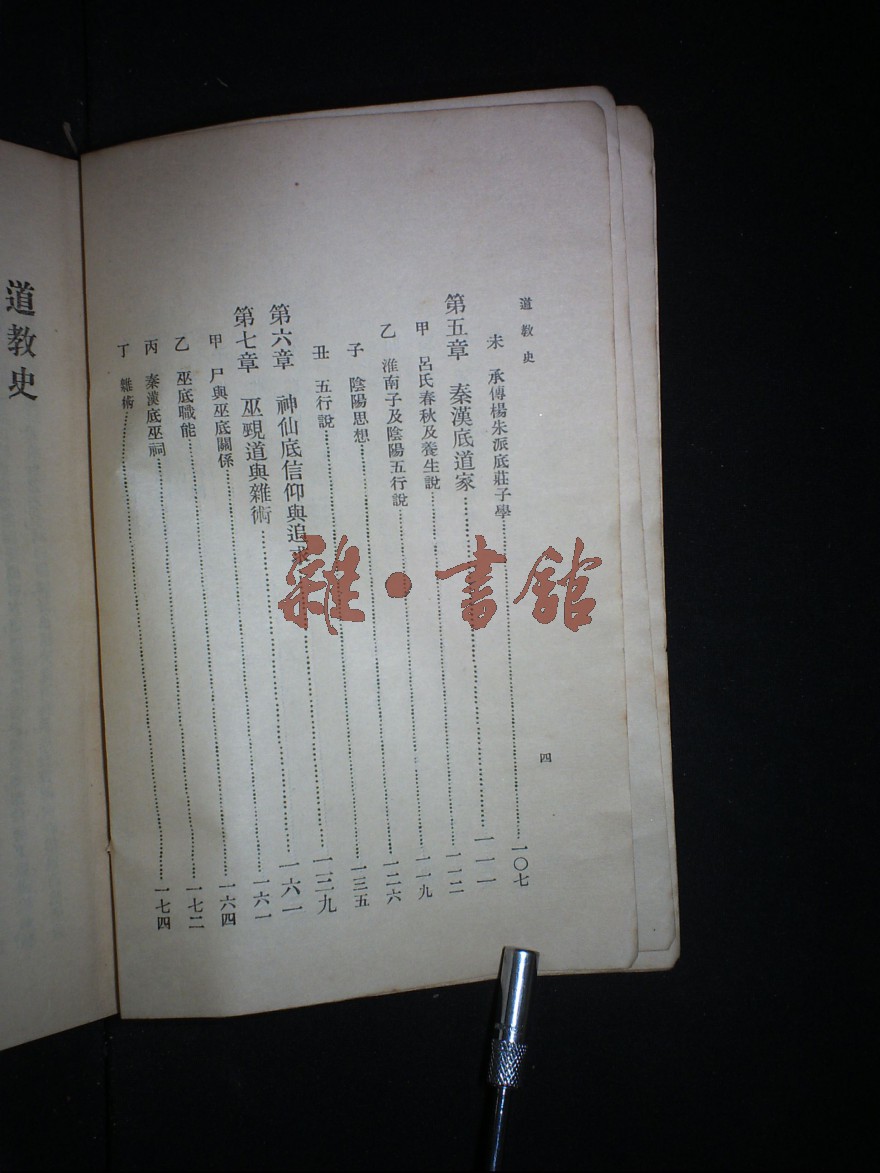 道教史 四
未 承傳楊朱派底莊子學……一〇七
第五章 秦漢底道家……一一一
甲 呂氏春秋及養生說……一一二
乙 淮南子及陰陽五行說……一一九
子 陰陽思想……一二六
丑 五行說……一三五
第六章 神仙底信仰與追求……一三九
第七章 巫覡道與雜術……一六一
甲 尸與巫底關係……一六一
乙 巫底職能……一六四
丙 秦漢底巫祠……一七二
丁 雜術……一七四
道教史
雜·書館